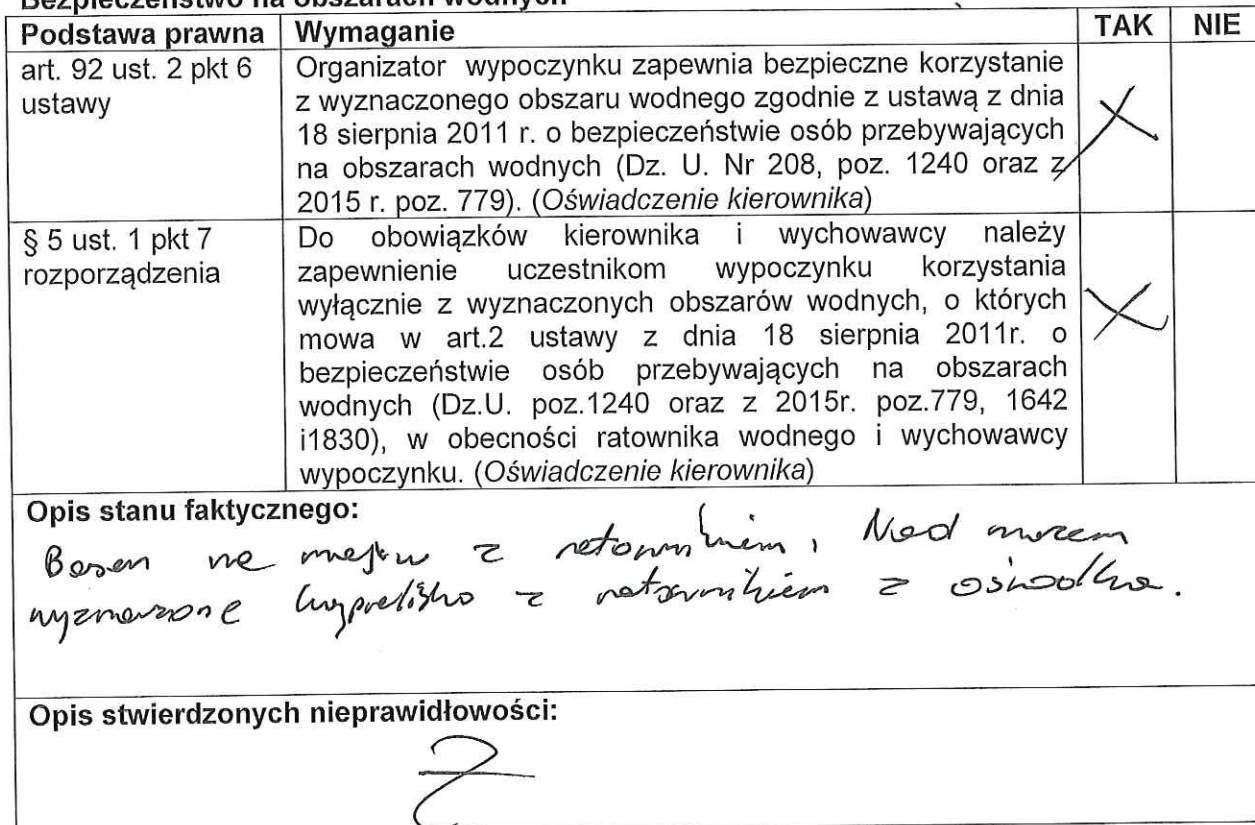 Bezpieczeństwo na obszarach wodnych
Podstawa prawna Wymaganie TAK NIE
art. 92 ust. 2 pkt 6 ustawy
Organizator wypoczynku zapewnia bezpieczne korzystanie
z wyznaczonego obszaru wodnego zgodnie z ustawą z dnia
18 sierpnia 2011 r. o bezpieczeństwie osób przebywających
na obszarach wodnych (Dz. U. Nr 208, poz. 1240 oraz z
2015 r. poz. 779). (Oświadczenie kierownika)
X
§ 5 ust. 1 pkt 7
rozporządzenia
Do obowiązków kierownika i wychowawcy należy
zapewnienie uczestnikom wypoczynku korzystania
wyłącznie z wyznaczonych obszarów wodnych, o których
mowa w art.2 ustawy z dnia 18 sierpnia 2011r. o
bezpieczeństwie osób przebywających na obszarach
wodnych (Dz.U. poz.1240 oraz z 2015r. poz.779, 1642
i1830), w obecności ratownika wodnego i wychowawcy
wypoczynku. (Oświadczenie kierownika)
X
Opis stanu faktycznego:
Basen na miejscu z ratownikiem, Nad morzem
wyznaczone kąpielisko z ratownikiem z ośrodka.
Opis stwierdzonych nieprawidłowości: